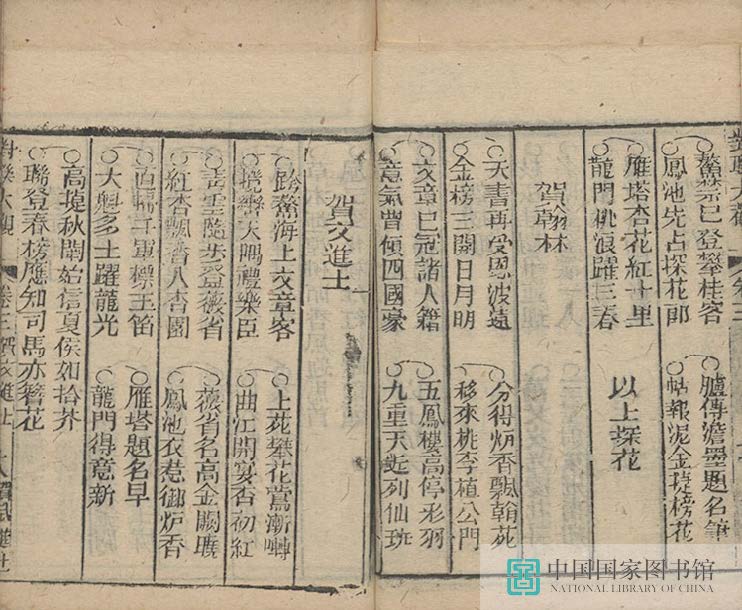 對聯大觀 卷三
鰲禁已登攀桂客 臚傳澹墨題名筆
鳳池先占探花郎 帖報泥金捷榜花
雁塔杏花紅十里
龍門桃浪躍三春 以上探花
賀翰林
天書再受恩波遠 分得炉香飄翰苑
金榜三開日月明 移來桃李植公門
文章已冠諸人籍 五鳳樓高停彩羽
意氣曾傾四國豪 九重天近列仙班
賀文進士
踏鰲海上文章客 上苑攀花鶯漸囀
攬轡天隅禮樂臣 曲江開宴杏初紅
青雲隨步登薇省 薇省名高金闕曠
紅杏飄香入杏園 鳳池衣惹御炉香
千軍標 雁塔題名早
大魁多士躍龍光 龍門得意新
高捷秋闈始信夏侯如拾芥
聯登春榜應知司馬亦簪花
對聯大觀 卷三 賀文進士 賀武進士
中国国家图书馆
NATIONAL LIBRARY OF CHINA